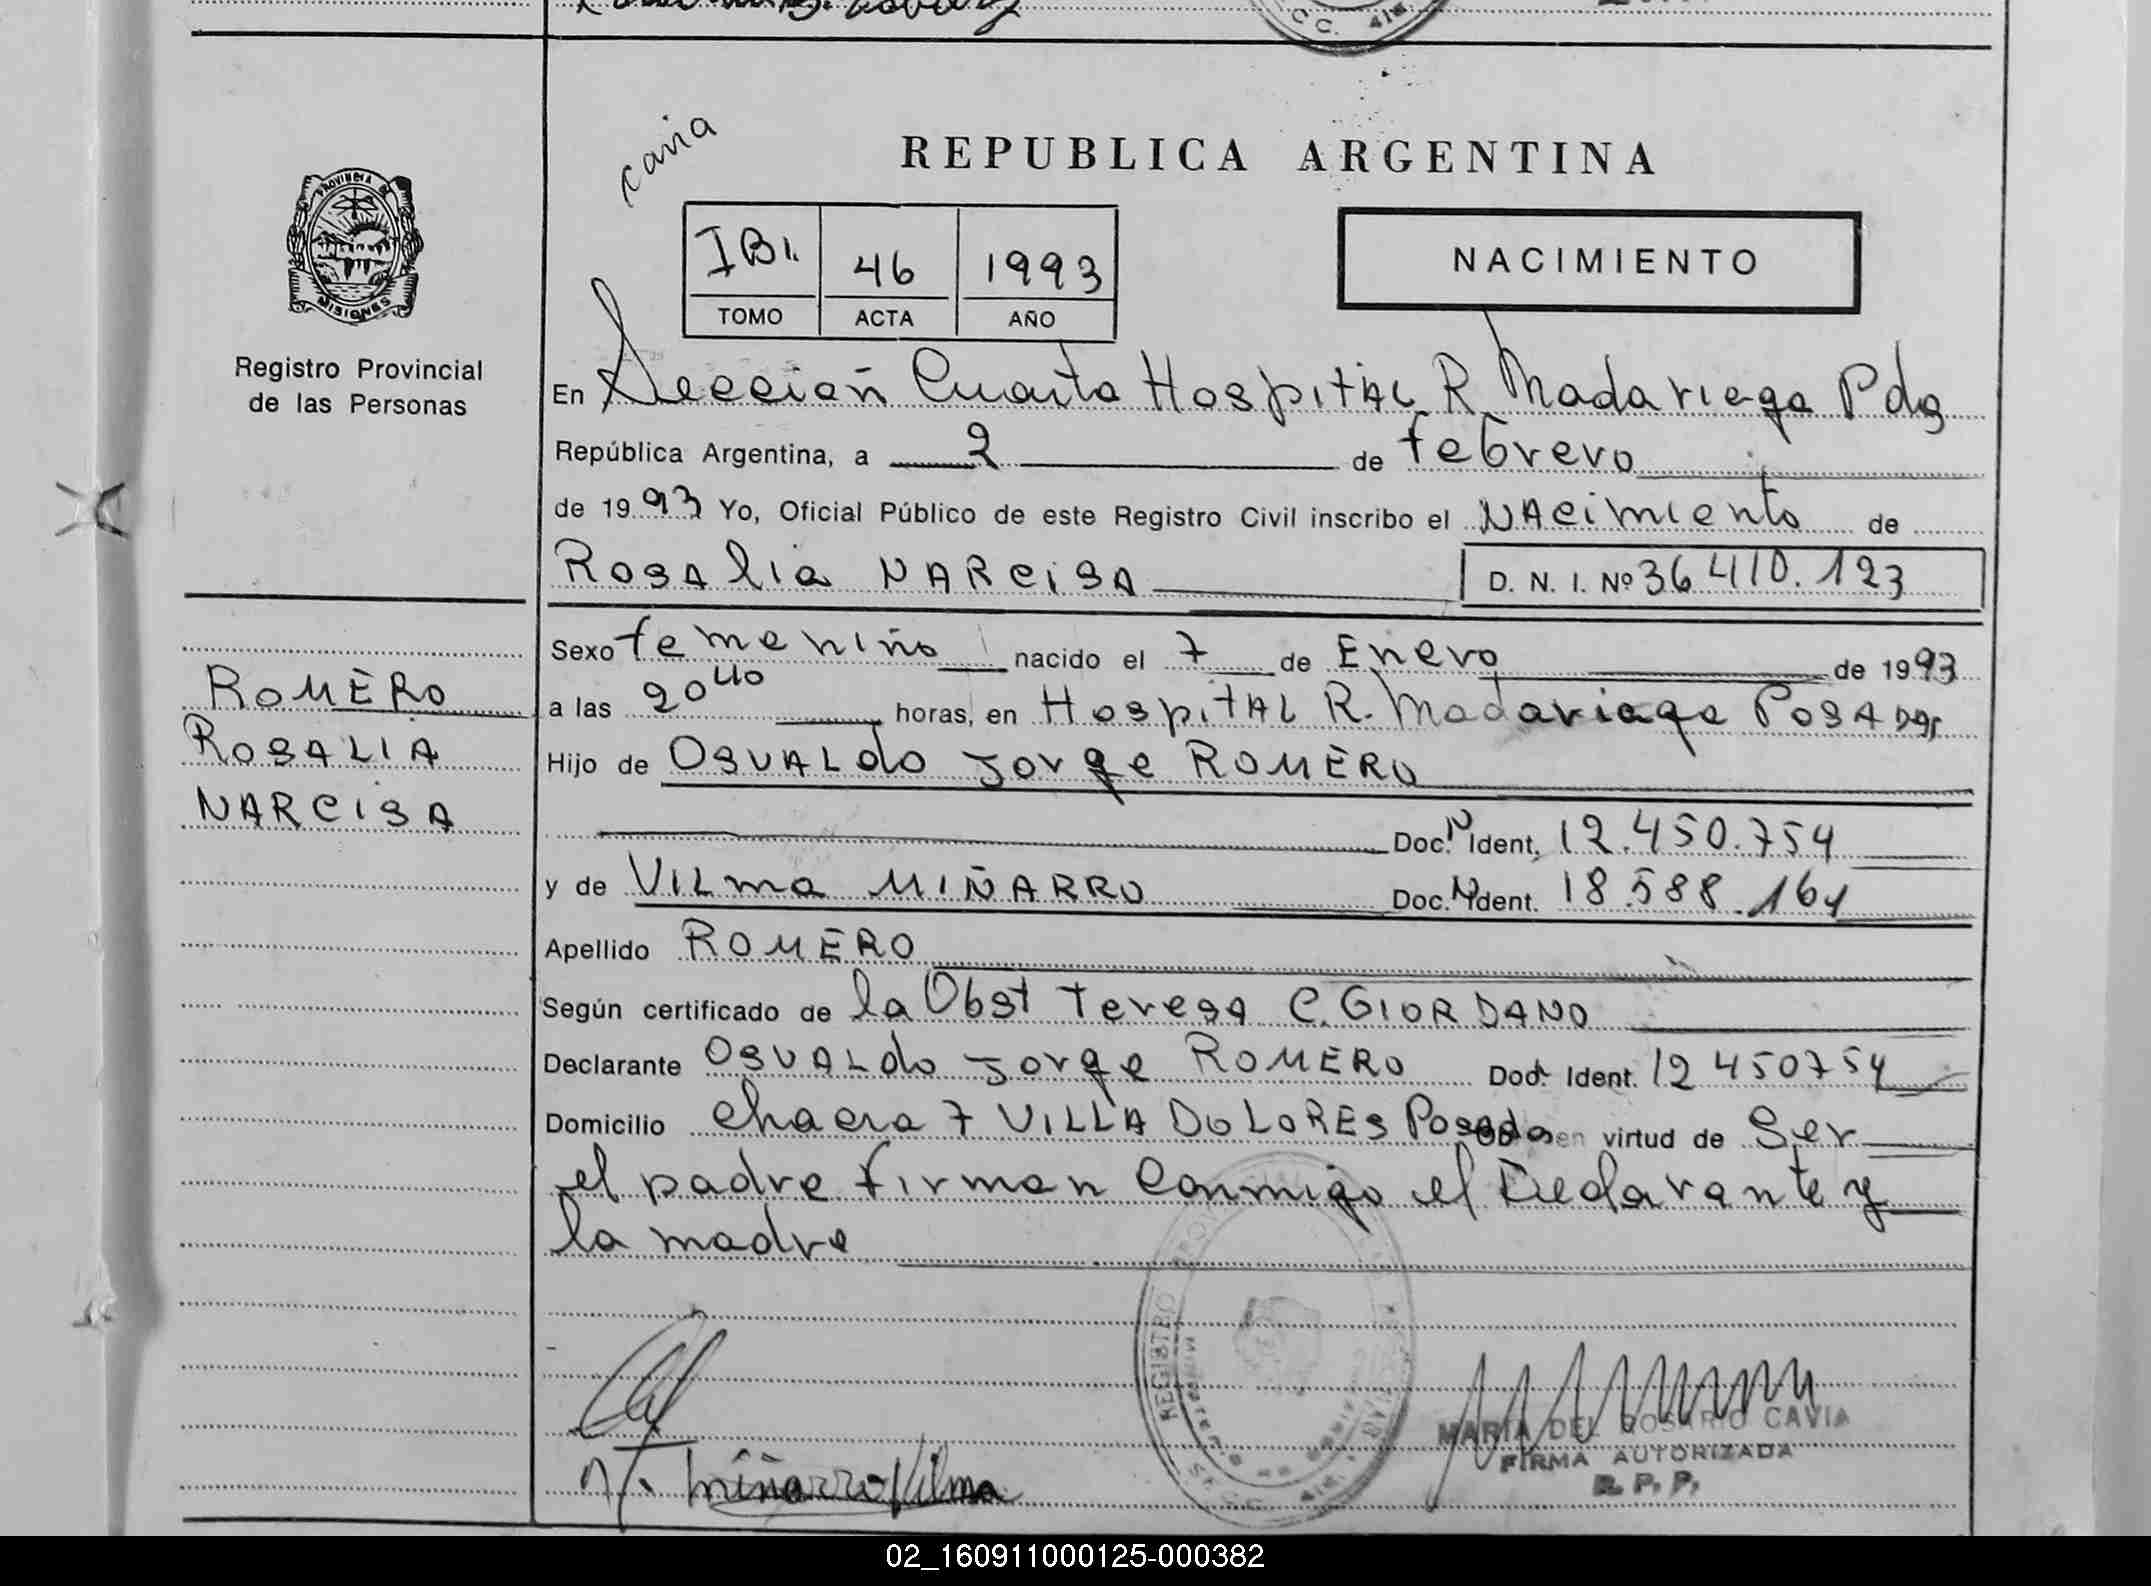 cavia
REPUBLICA ARGENTINA
IBI. 46 1993
TOMO ACTA AÑO
NACIMIENTO
PROVINCIA DE
MISIONES
Registro Provincial
de las Personas
En Sección Cuarta Hospital R Madariaga Pdas
República Argentina, a 2 de febrero
de 1993 Yo, Oficial Público de este Registro Civil inscribo el NAcimiento de
RosAlia NARcisA D. N. I. Nº 36.410.123
Sexo femenino nacido el 7 de Enero de 1993
a las 20 40 horas, en HospitAL R. Madariaga POSADAS
Hijo de OsVALdo Jorge ROMERO
Doc. N Ident. 12.450.754
y de VILma MIÑARRO Doc. N Ident. 18.588.161
Apellido ROMERO
Según certificado de la Obst Teresa C. GIORDANO
Declarante OsVALdo Jorge ROMERO Doc. Ident. 12 450754
Domicilio chacra 7 VILLA DOLORES Posadas en virtud de Ser
el padre firman conmigo el Declarante y
la madre
ROMERO
ROSALIA
NARCISA
REGISTRO PROVINCIAL
Miñarro Vilma
MARIA DEL ROSARIO CAVIA
FIRMA AUTORIZADA
R. P. P.
02_160911000125-000382